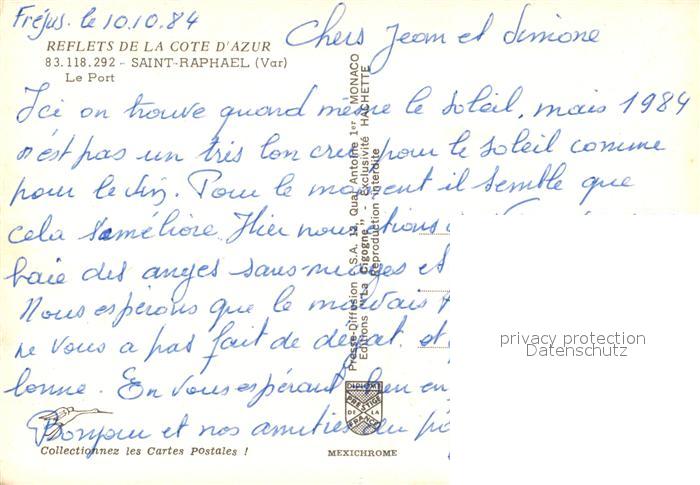 Fréjus. le 10.10.84
REFLETS DE LA COTE D'AZUR
83.118.292 - SAINT-RAPHAEL (Var)
Le Port
Chers Jean et Simone
Ici on trouve quand même le soleil, mais 1984
n'est pas un très bon cru pour le soleil comme
pour le vin. Pour le moment il semble que
cela s'améliore. Hier nous étions
baie des anges sans nuages et
Nous espérons que le mauvais
ne vous a pas fait de dégat. et
bonne. En vous espérant bien en
Bonjour et nos amitiés du
Presse-Diffusion S.A. 12, Quai Antoine 1er MONACO
Editions "La Cigogne" - Exclusivité HACHETTE
Reproduction interdite
DIPLOME
PRESTIGE
DE LA
FRANCE
Collectionnez les Cartes Postales !
MEXICHROME
privacy protection
Datenschutz